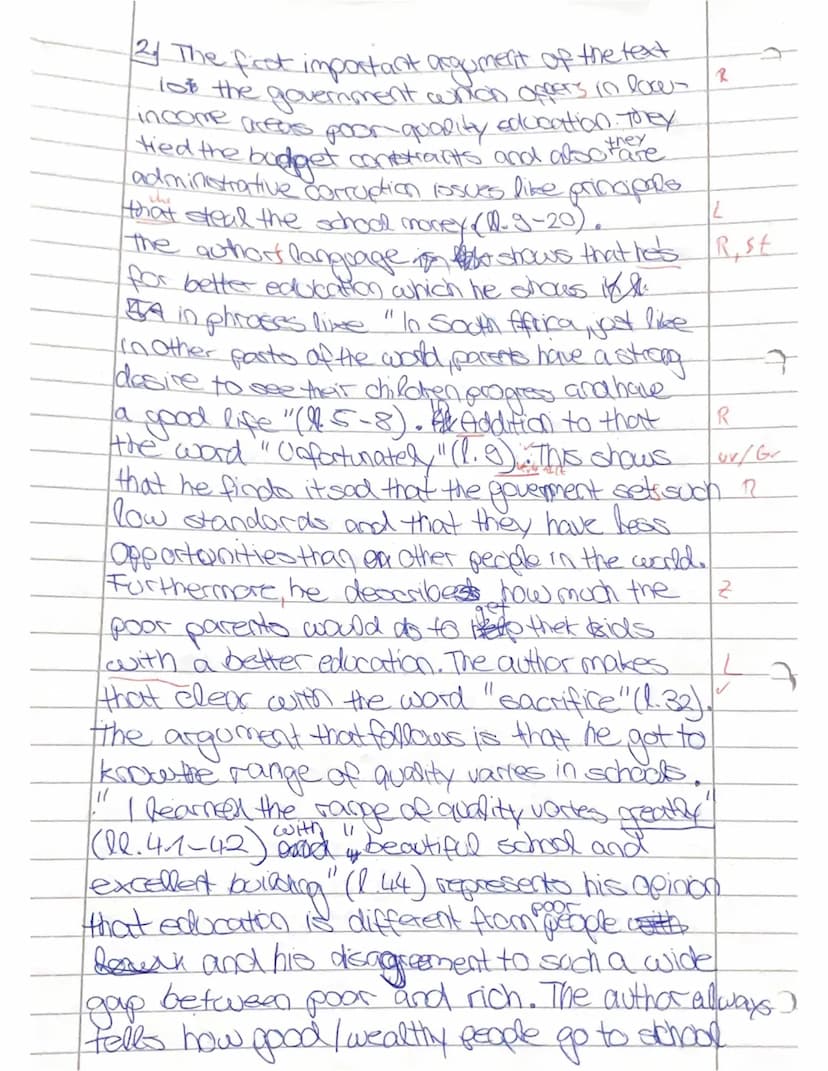 2) The first important argument of the text
is the government which offers in low-
R
income areas poor-quality education. They
tied the budget contraints and also they are
administrative corruption issues like principals
that steal the school money (ll. 9-20).
L
the author's language shows that he's
R, St
for better education which he shows
in phrases like "In South Africa, just like
in other parts of the world, parents have a strong
desire to see their children progress and have
a good life" (ll. 5-8). Addition to that
R
the word "Unfortunately" (l. 9). This shows
Gr
that he finds it sad that the government sets such
R
low standards and that they have less
opportunities than other people in the world.
Furthermore, he describes how much the
Z
poor parents would do to get their kids
with a better education. The author makes
L
that clear with the word "sacrifice" (l. 32).
the argument that follows is that he got to
know the range of quality varies in schools.
" I learned the range of quality varies greatly"
(ll. 41-42) with "beautiful school and
excellent building" (l. 44) represents his opinion
that education is different from poor people
and his disagreement to such a wide
gap between poor and rich. The author always
tells how good/wealthy people go to school